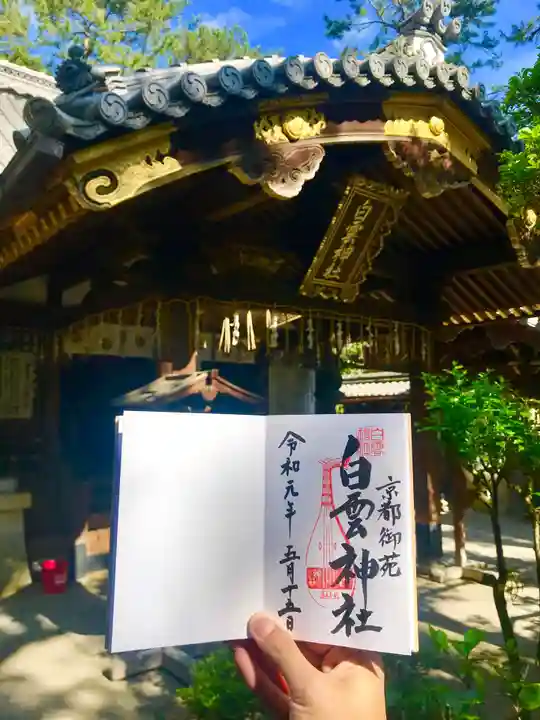 白雲神社
京都御苑
白雲神社
令和元年 五月十五日